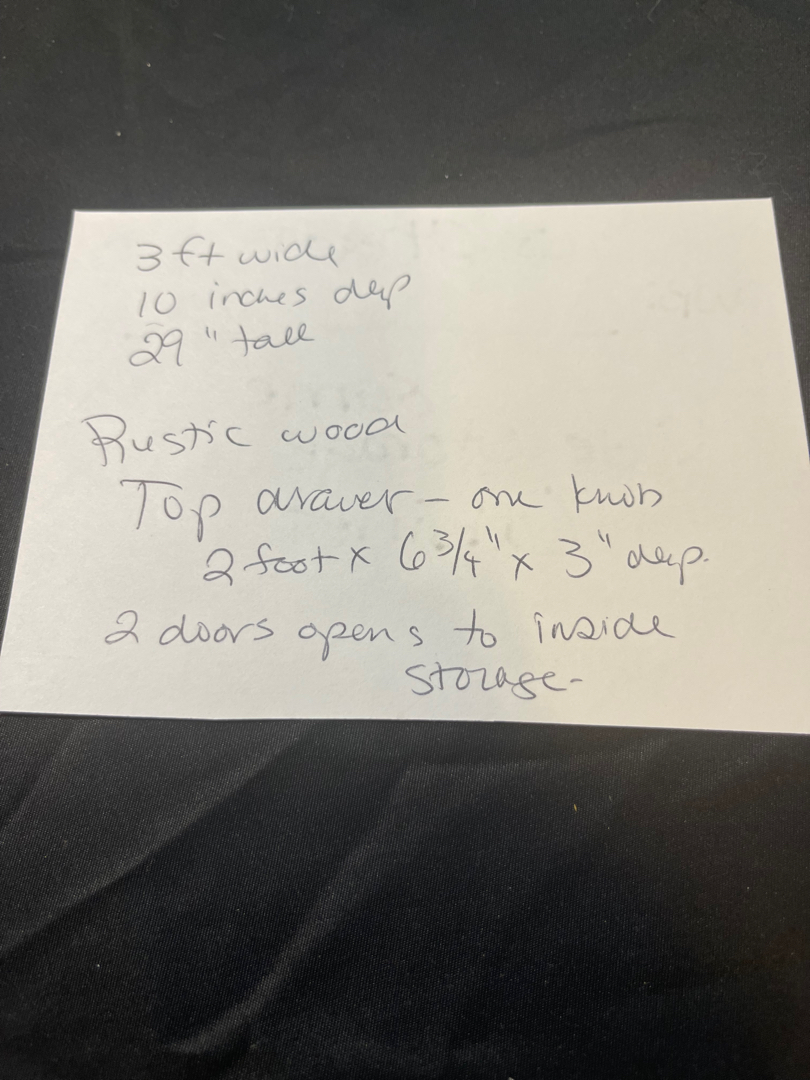 3 ft wide
10 inches deep
29" tall
Rustic wood
Top drawer - one knob
2 foot x 6 3/4" x 3" deep.
2 doors opens to inside
storage-